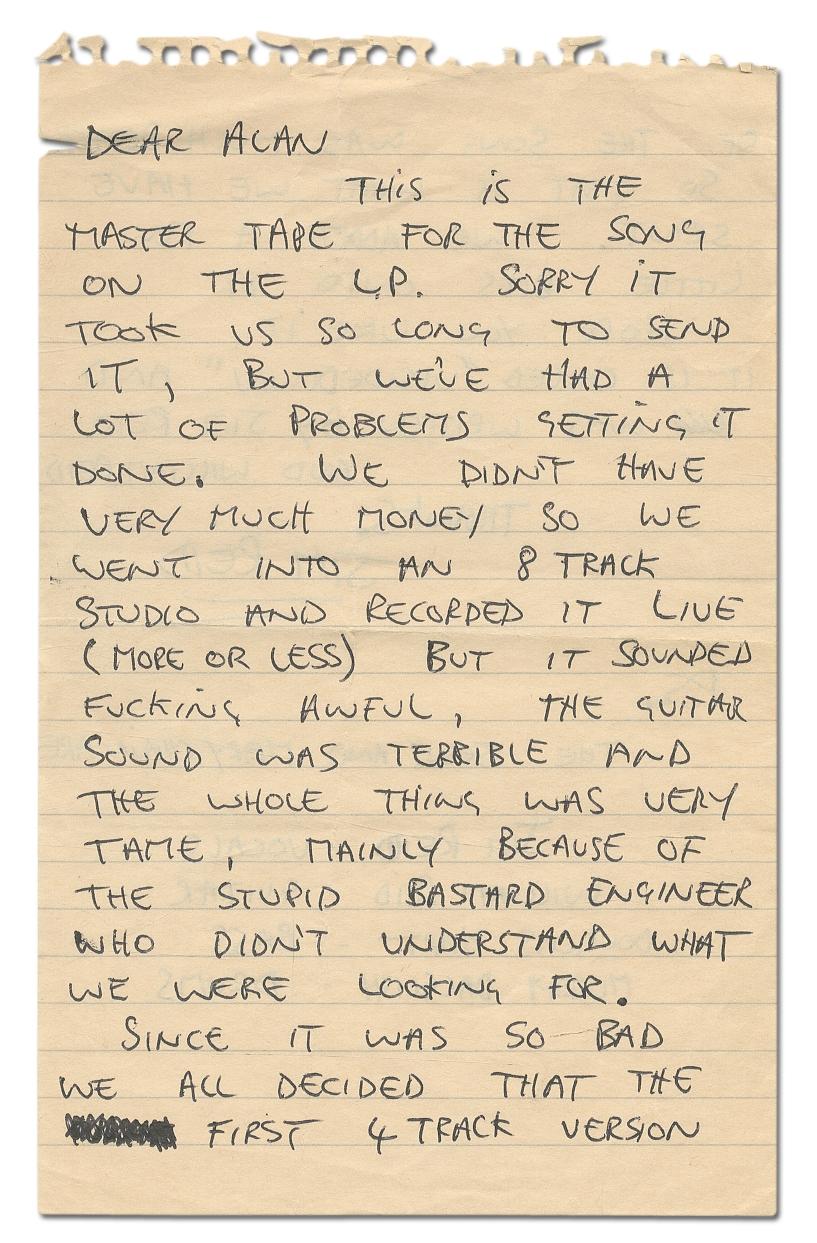 DEAR ALAN
THIS IS THE
MASTER TAPE FOR THE SONG
ON THE L.P. SORRY IT
TOOK US SO LONG TO SEND
IT, BUT WE'VE HAD A
LOT OF PROBLEMS GETTING IT
DONE. WE DIDN'T HAVE
VERY MUCH MONEY SO WE
WENT INTO AN 8 TRACK
STUDIO AND RECORDED IT LIVE
(MORE OR LESS) BUT IT SOUNDED
FUCKING AWFUL, THE GUITAR
SOUND WAS TERRIBLE AND
THE WHOLE THING WAS VERY
TAME, MAINLY BECAUSE OF
THE STUPID BASTARD ENGINEER
WHO DIDN'T UNDERSTAND WHAT
WE WERE LOOKING FOR.
SINCE IT WAS SO BAD
WE ALL DECIDED THAT THE
FIRST 4 TRACK VERSION